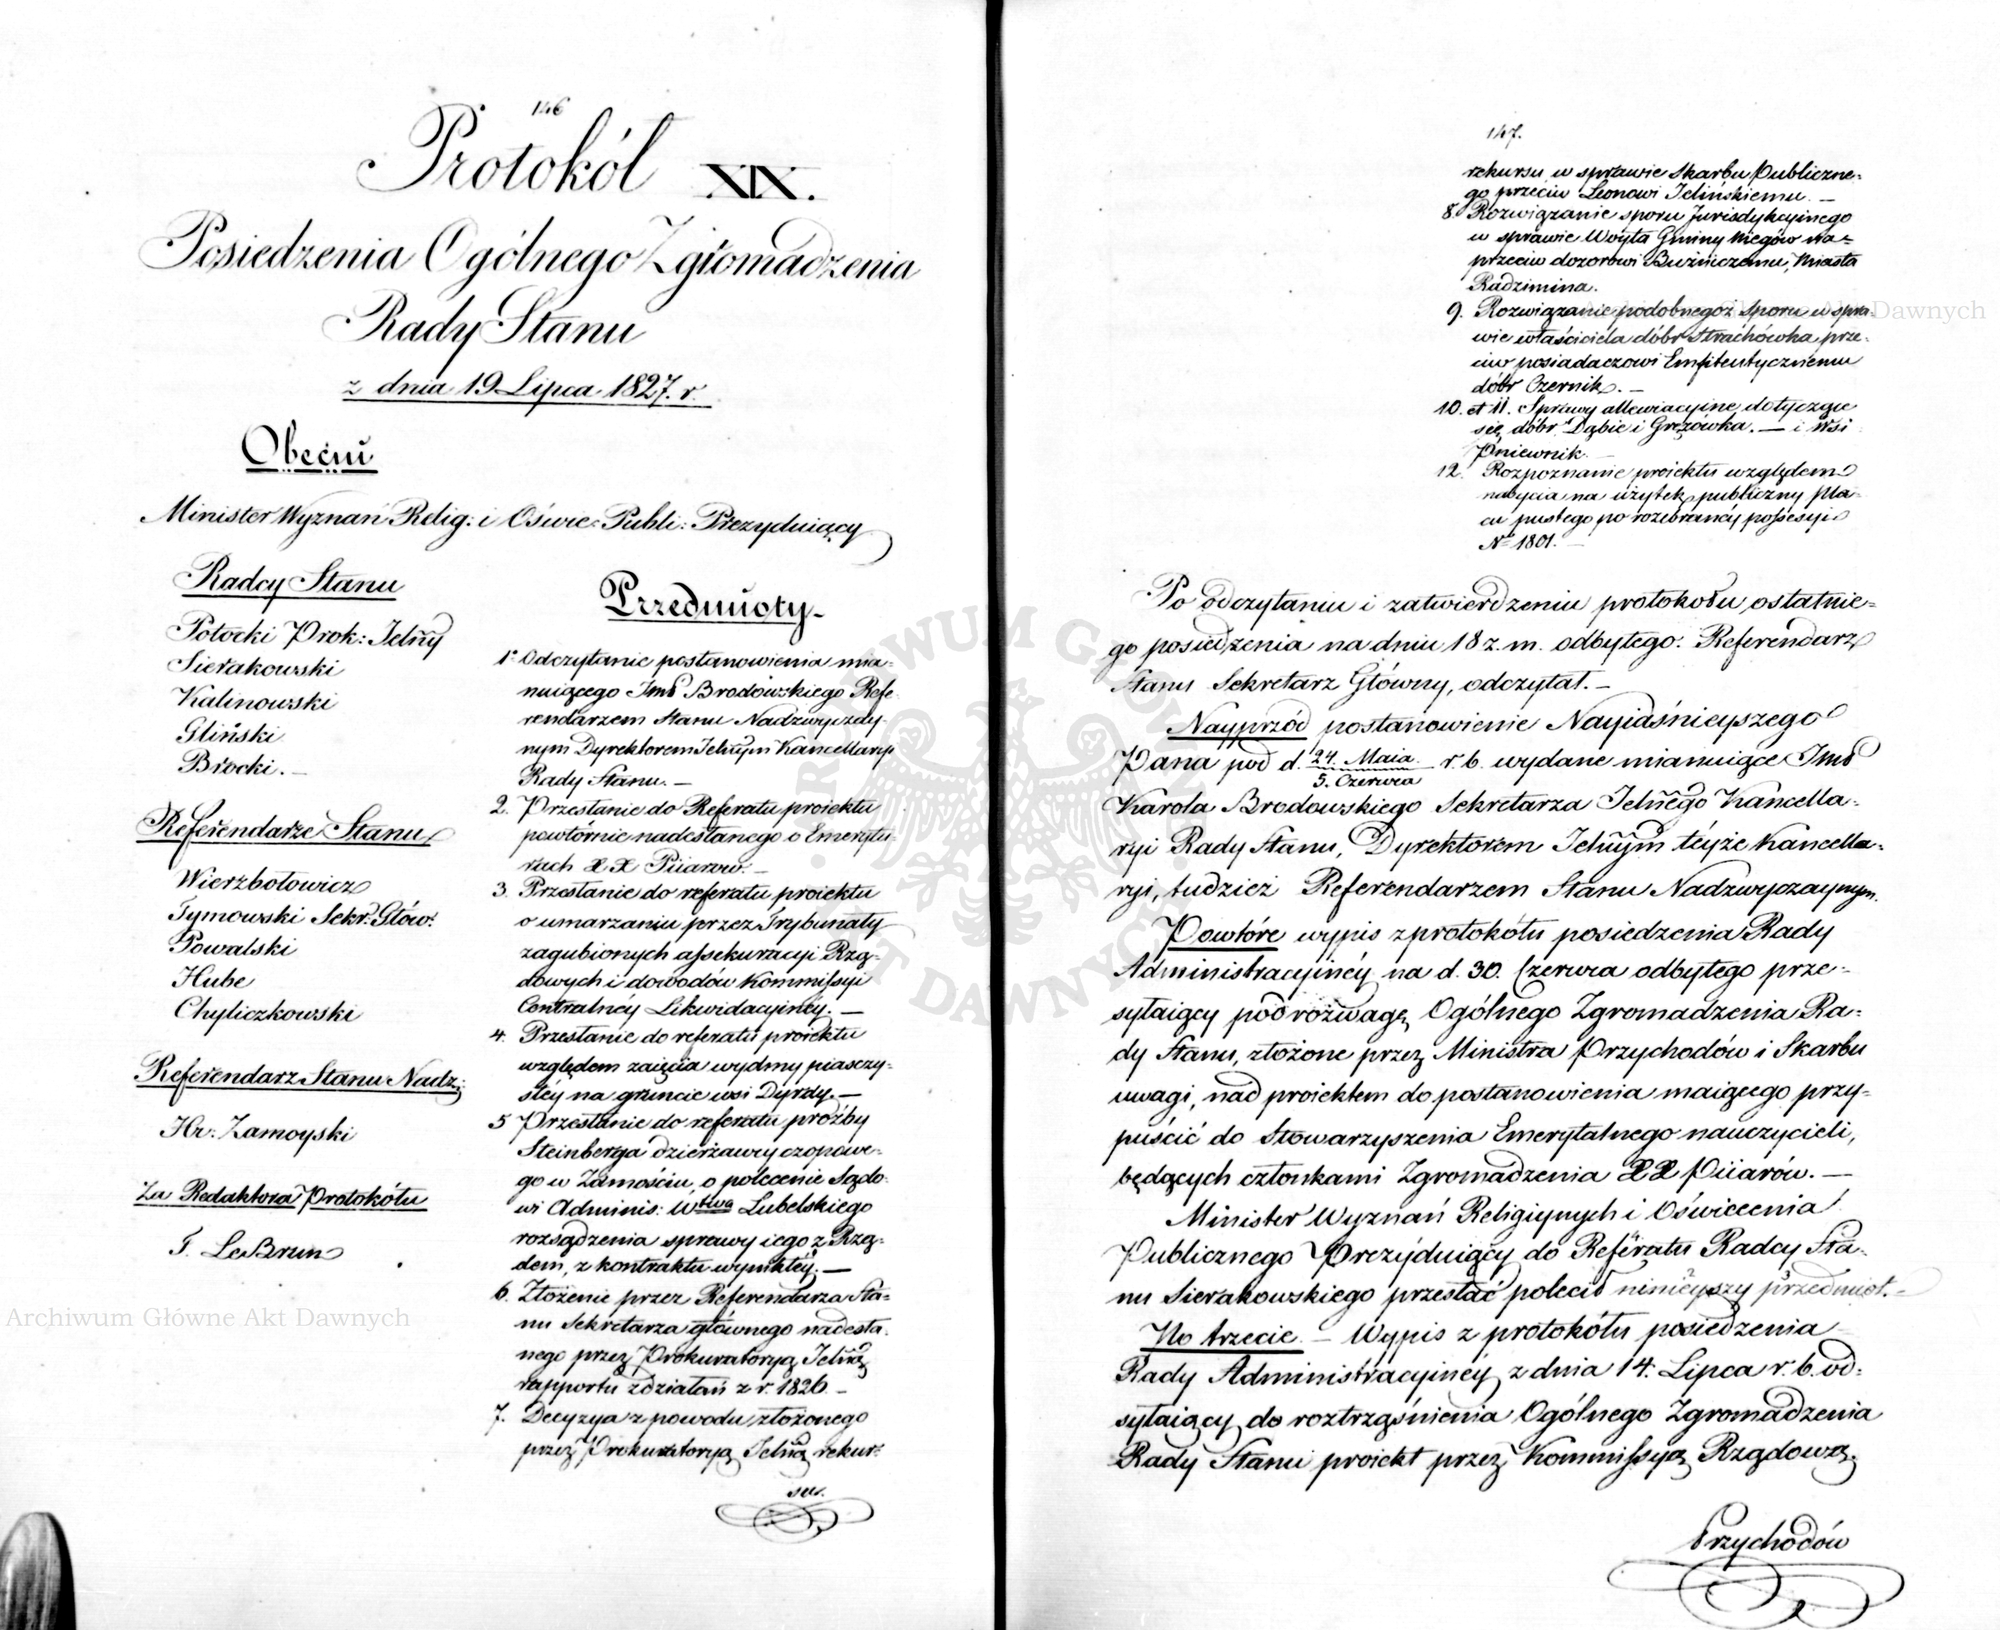 146
Protokół XIX.
Posiedzenia Ogólnego Zgromadzenia
Rady Stanu
z dnia 19 Lipca 1827. r.
Obecni
Minister Wyznań Relig: i Oświe: Publi: Prezyduiący
Radcy Stanu
Potocki Prok: Jelny
Sierakowski
Kalinowski
Gliński
Brocki. –
Referendarze Stanu
Wierzbołowicz
Tymowski Sekr: Głów:
Powalski
Hube
Chyliczkowski
Referendarz Stanu Nadz:
Hr. Zamoyski
Za Redaktora Protokółu
T. LeBrun
Przedmioty
1° Odczytanie postanowienia mia-
nuiącego Jmć Brodowskiego Refe-
rendarzem Stanu Nadzwyczay-
nym Dyrektorem Jelnym Kancellaryi
Rady Stanu. –
2. Przesłanie do Referatu proiektu
powtórnie nadesłanego o Emerytu-
rach XX Piiarow. –
3. Przesłanie do referatu proiektu
o umarzaniu przez Trybunały
zagubionych assekuracyi Rzą-
dowych i dowodów Kommissyi
Centralnéy Likwidacyinéy. –
4. Przesłanie do referatu proiektu
względem zaięcia wydmy piasczy-
stéy na gruncie wsi Dyrdy. –
5 Przesłanie do referatu prożby
Steinberga dzierżawcy czopowe-
go w Zamościu, o polecenie Sądo-
wi Adminis: Wtwa Lubelskiego
rozsądzenia sprawy iego z Rzą-
dem, z kontraktu wynikłéy. –
6. Złożenie przez Referendarza Sta-
nu Sekretarza głównego nadesła-
nego przez Prokuratoryą Jelną
rapportu z działań z r. 1826 –
7. Decyzya z powodu złożonego
przez Prokuratoryą Jelną rekur-
su.
147.
rekursu w sprawie Skarbu Publiczne-
go przeciw Leonowi Jelińskiemu. –
8. Rozwiązanie sporu Jurisdykcyinego
w sprawie Woyta Gminy Niegów na-
przeciw dozorowi Bużniczemu, Miasta
Radzimina.
9. Rozwiązanie podobnegoż sporu w spra-
wie właściciela dóbr Strachówka prze-
ciw posiadaczowi Emfiteutycznemu
dóbr Czernik. –
10. et 11. Sprawy allewiacyine dotyczące
się dóbr Dąbie i Gręzówka. – i Wsi
Pniewnik. –
12. Rozpoznanie proiektu względem
nabycia na użytek publiczny pla-
cu pustego po rozebranéy possessyi
N° 1801. –
Po odczytaniu i zatwierdzeniu protokołu, ostatnie-
go posiedzenia na dniu 18 z. m. odbytego. Referendarz
Stanu Sekretarz Główny, odczytał. –
Nayprzód postanowienie Nayiaśnieyszego
Pana pod d. 24. Maia / 5. Czerwca r. b. wydane mianuiące Jmć
Karola Brodowskiego Sekretarza Jelnego Kancella-
ryi Rady Stanu, Dyrektorem Jelnym téyże Kancella-
ryi, tudzież Referendarzem Stanu Nadzwyczaynym.
Powtóre wypis z protokółu posiedzenia Rady
Administracyinéy na d. 30. Czerwca odbytego prze-
syłaiący pod rozwagę Ogólnego Zgromadzenia Ra-
dy Stanu, złożone przez Ministra Przychodów i Skarbu
uwagi, nad proiektem do postanowienia maiącego przy-
puścić do Stowarzyszenia Emerytalnego nauczycieli,
będących członkami Zgromadzenia XX Piiarów. –
Minister Wyznań Religiynych i Oświecenia
Publicznego Prezyduiący do Referatu Radcy Sta-
nu Sierakowskiego przesłać polecił ninieyszy przedmiot. –
Po trzecie – Wypis z protokółu posiedzenia
Rady Administracyinéy z dnia 14. Lipca r. b. od-
syłaiący do roztrząśnienia Ogólnego Zgromadzenia
Rady Stanu proiekt przez Kommissyą Rządową
Przychodów
Archiwum Główne Akt Dawnych
Archiwum Główne Akt Dawnych
ARCHIWUM GŁÓWNE AKT DAWNYCH